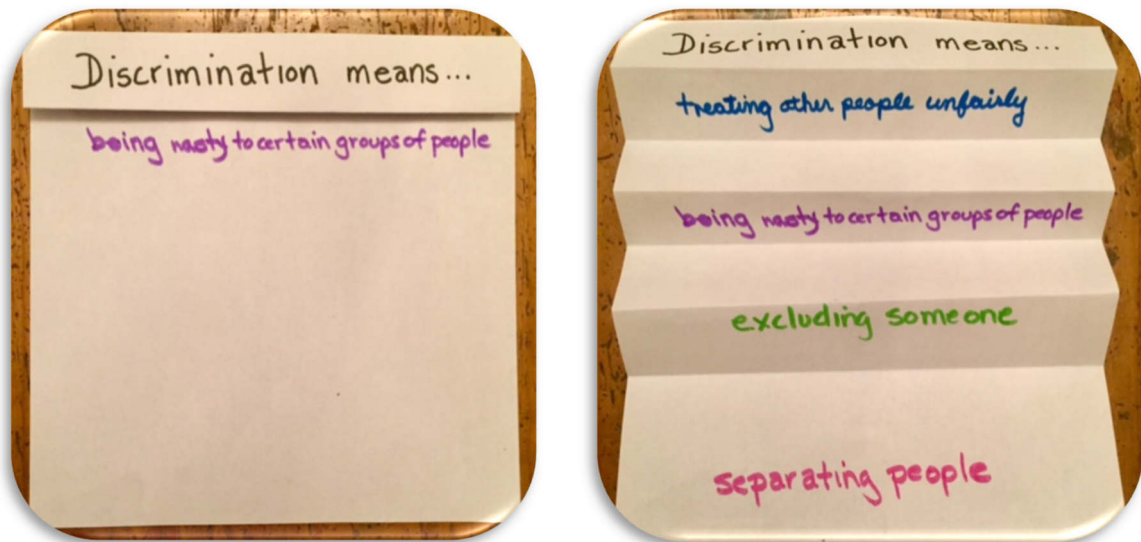 Discrimination means...
being nasty to certain groups of people
Discrimination means...
treating other people unfairly
being nasty to certain groups of people
excluding someone
separating people